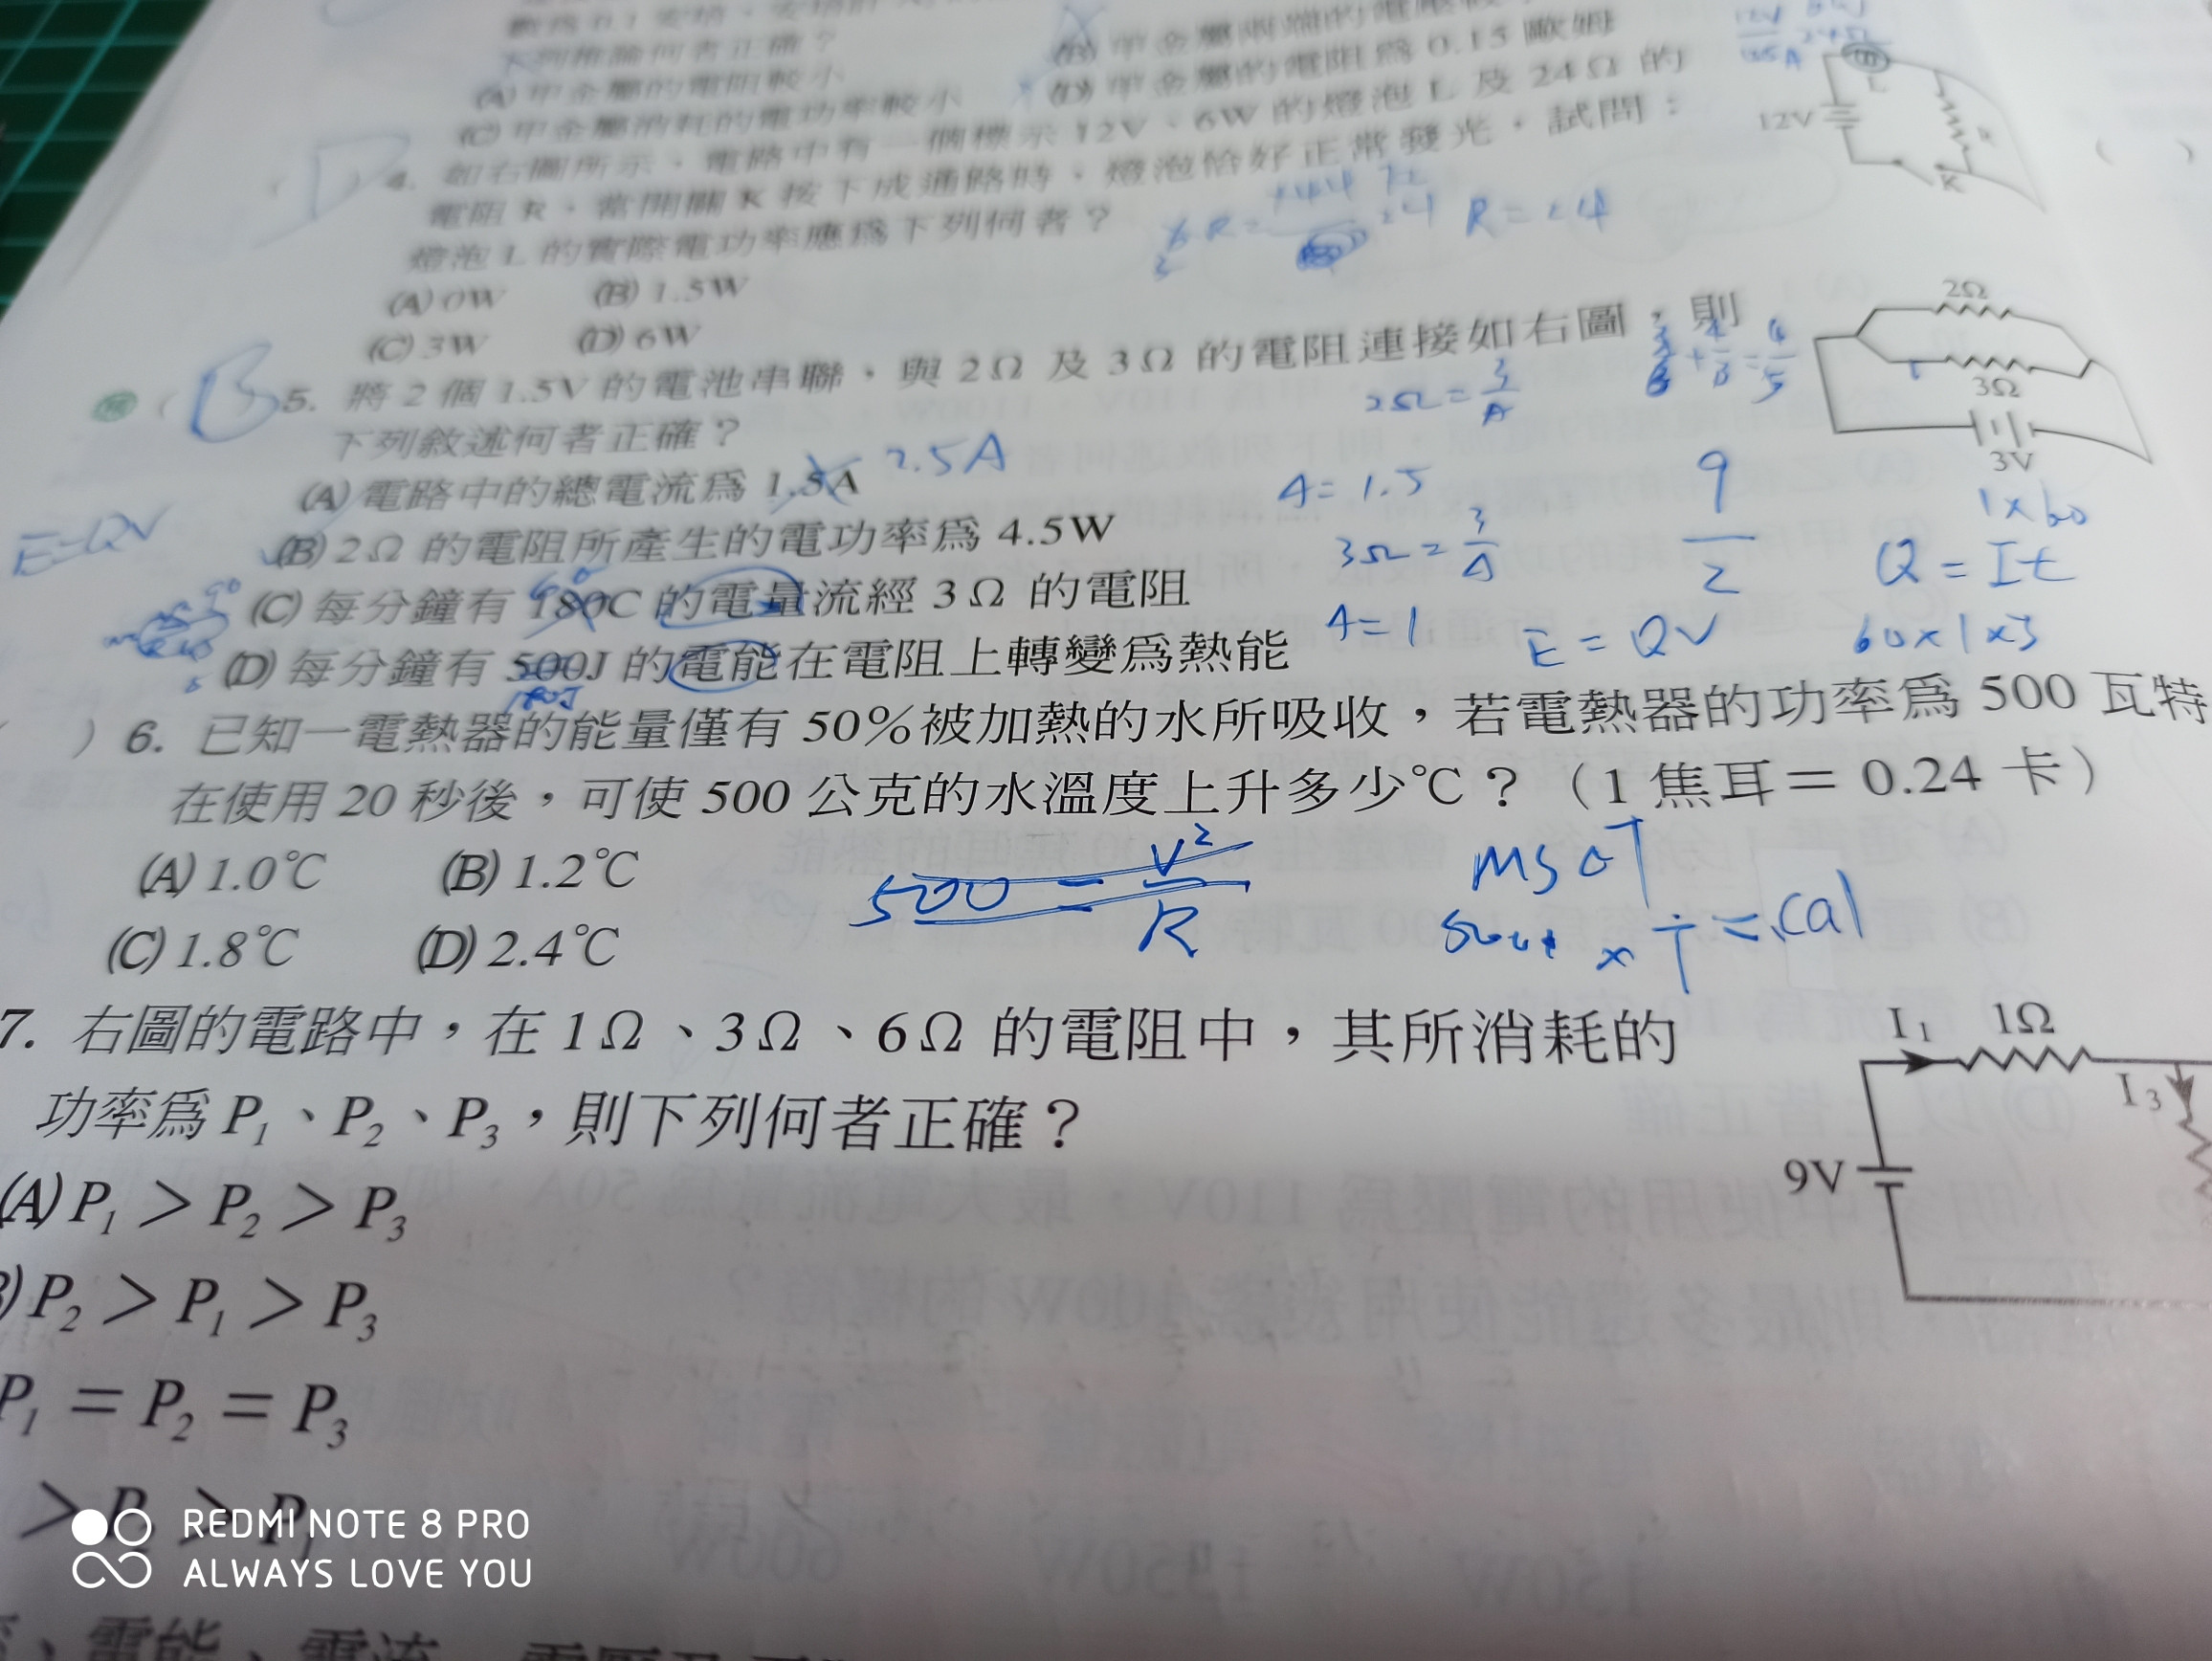 下列推論何者正確？
(A) 甲金屬的電阻較小
(D) 甲金屬的電阻爲 0.15 歐姆
(C) 甲金屬消耗的電功率較小
4. 如右圖所示，電路中有一個標示 12V、6W 的燈泡 L 及 24Ω 的
電阻 R，當開關 K 按下成通路時，燈泡恰好正常發光，試問：
燈泡 L 的實際電功率應爲下列何者？
(A) 0W (B) 1.5W
(C) 3W (D) 6W
12V
L
R
K
R = 24
D
B
5. 將 2 個 1.5V 的電池串聯，與 2Ω 及 3Ω 的電阻連接如右圖，則
下列敘述何者正確？
(A) 電路中的總電流爲 1.5A 2.5A
(B) 2Ω 的電阻所產生的電功率爲 4.5W
(C) 每分鐘有 180C 的電量流經 3Ω 的電阻
(D) 每分鐘有 500J 的電能在電阻上轉變爲熱能
180J
E=QV
2Ω
3Ω
3V
2Ω = 3/A
A = 1.5
3Ω = 3/A
A = 1
9/2
1×60
Q = It
E = QV
60×1×3
) 6. 已知一電熱器的能量僅有 50%被加熱的水所吸收，若電熱器的功率爲 500 瓦特
在使用 20 秒後，可使 500 公克的水溫度上升多少℃？（1 焦耳＝ 0.24 卡）
(A) 1.0℃ (B) 1.2℃
(C) 1.8℃ (D) 2.4℃
500 = V²/R
× T = cal
7. 右圖的電路中，在 1Ω、3Ω、6Ω 的電阻中，其所消耗的
功率爲 P₁、P₂、P₃，則下列何者正確？
(A) P₁ > P₂ > P₃
) P₂ > P₁ > P₃
P₁ = P₂ = P₃
> P₂ > P₁
I₁ 1Ω
I₃
9V
REDMI NOTE 8 PRO
ALWAYS LOVE YOU
、電能、電流、電壓及